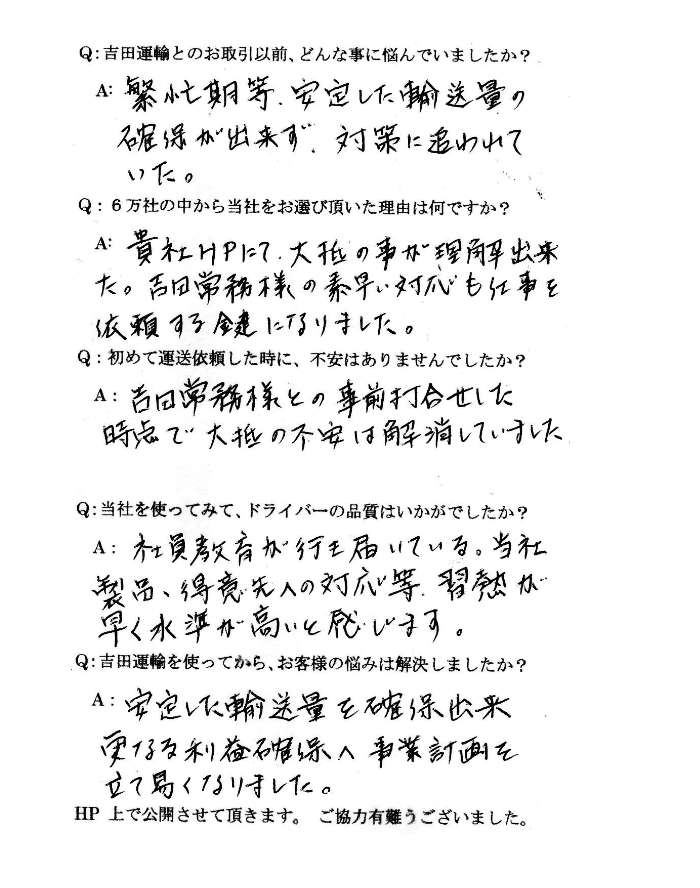 Q:吉田運輸とのお取引以前、どんな事に悩んでいましたか？
A: 繁忙期等、安定した輸送量の
確保が出来ず、対策に追われて
いた。
Q:６万社の中から当社をお選び頂いた理由は何ですか？
A: 貴社HPにて、大抵の事が理解出来
た。吉田常務様の素早い対応も仕事を
依頼する鍵になりました。
Q:初めて運送依頼した時に、不安はありませんでしたか？
A: 吉田常務様との事前打合せした
時点で大抵の不安は解消していました
Q:当社を使ってみて、ドライバーの品質はいかがでしたか？
A: 社員教育が行き届いている。当社
製品、得意先への対応等、習熟が
早く水準が高いと感じます。
Q:吉田運輸を使ってから、お客様の悩みは解決しましたか？
A: 安定した輸送量を確保出来
更なる利益確保へ事業計画を
立て易くなりました。
HP 上で公開させて頂きます。 ご協力有難うございました。